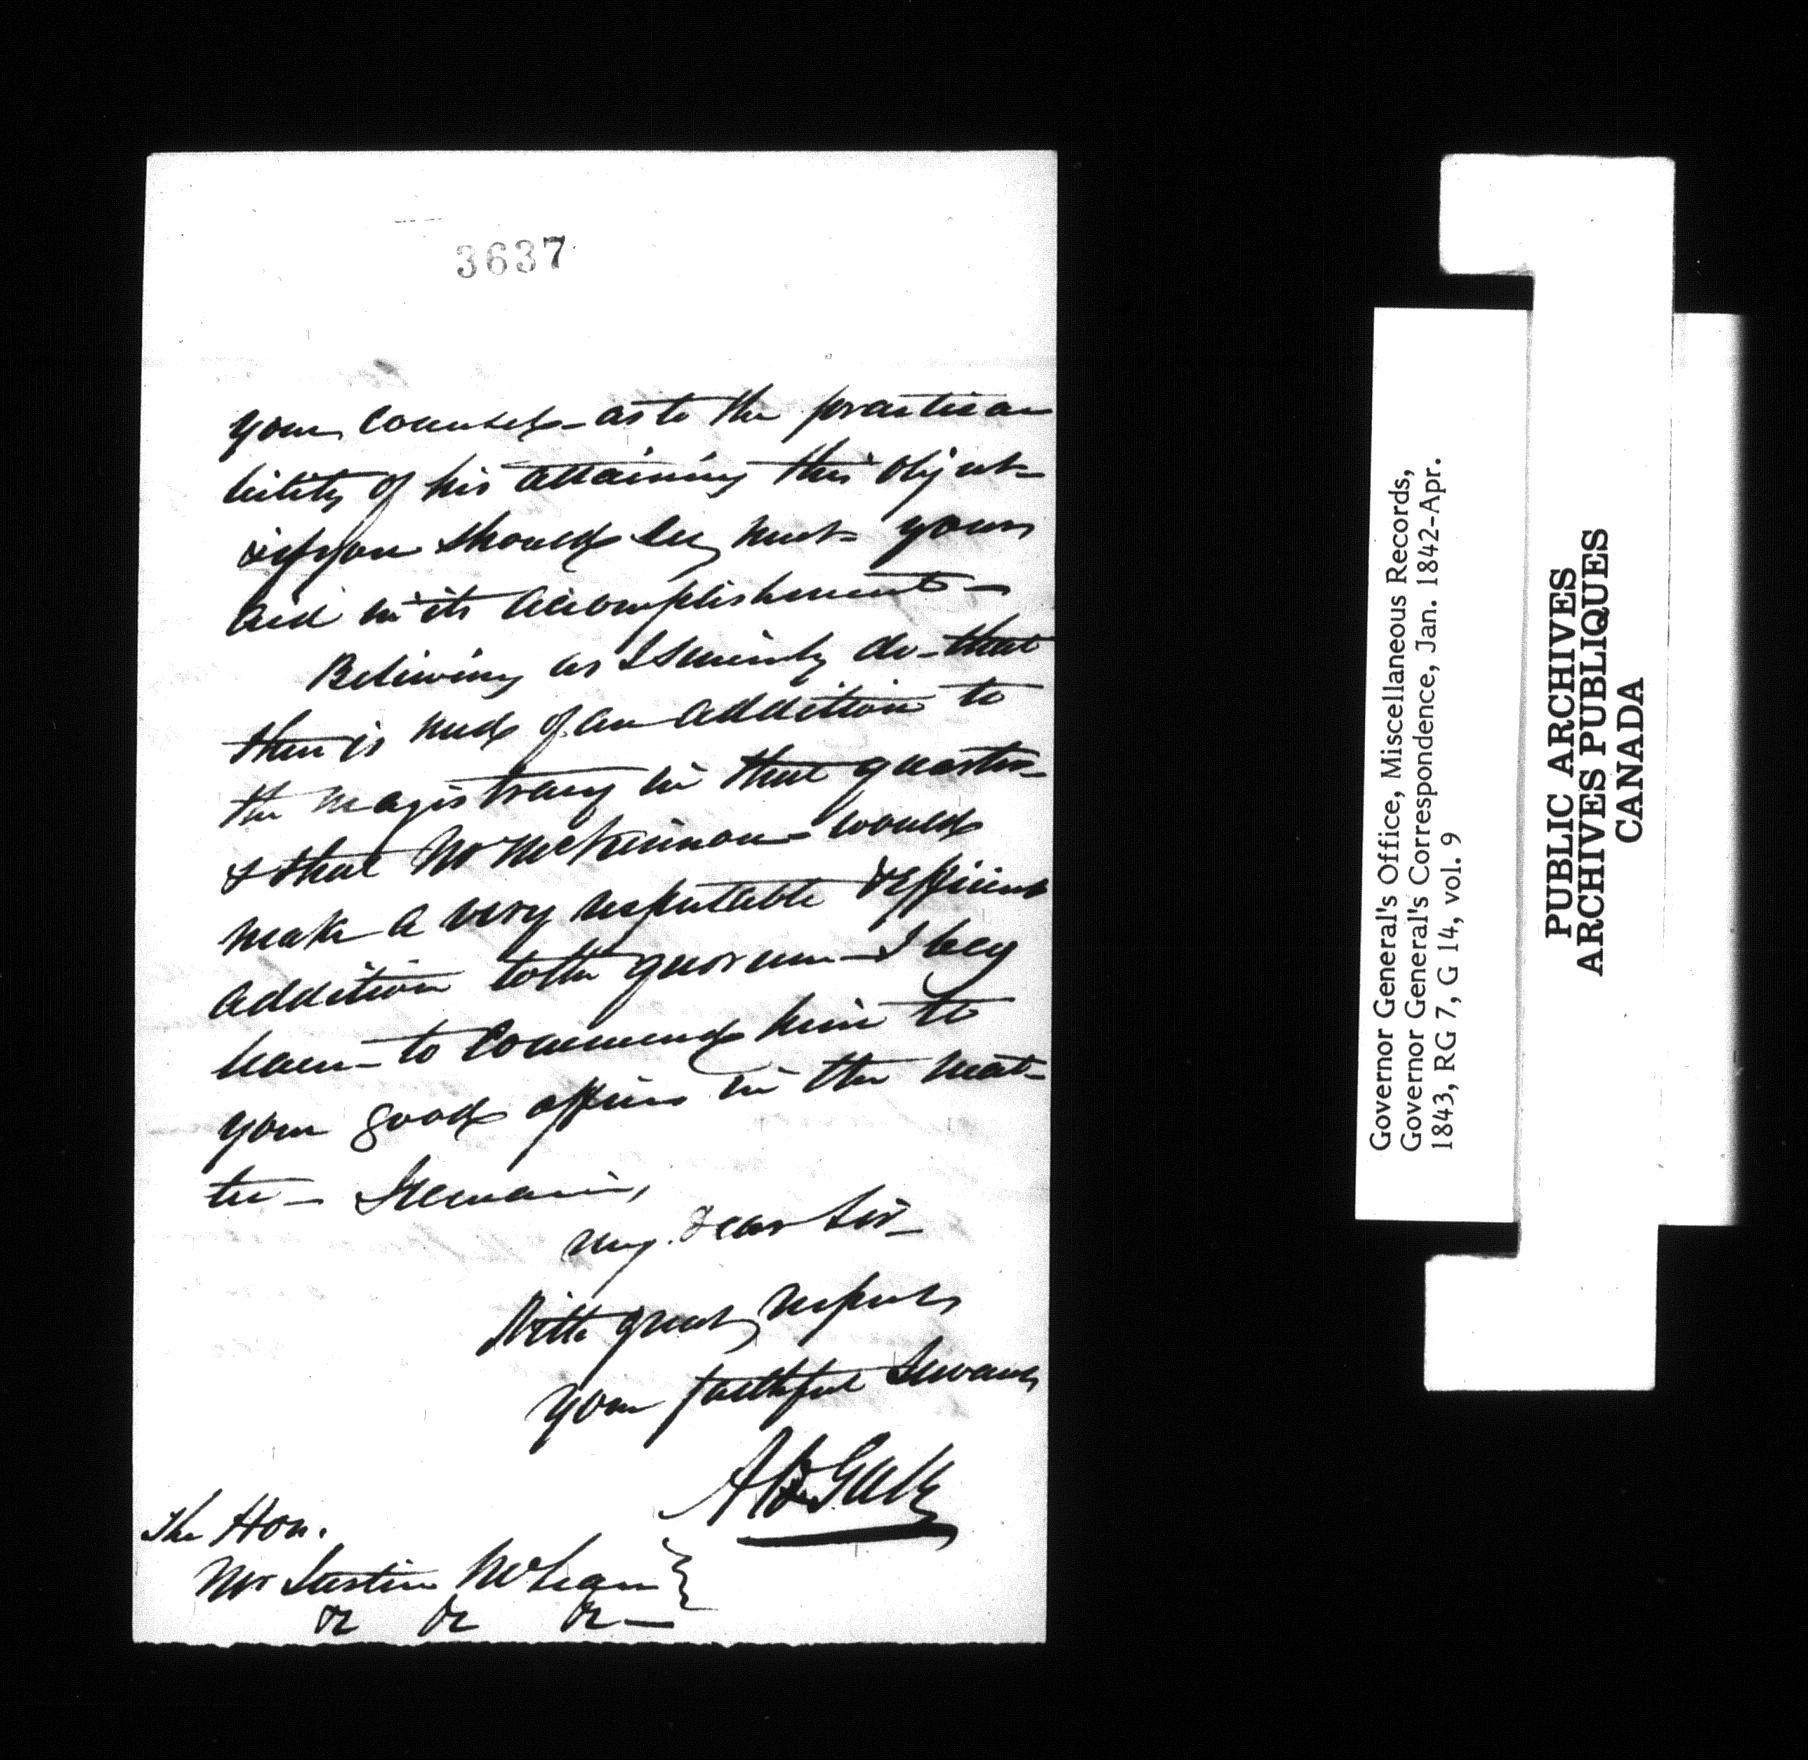 3637
your counsel - as to the practica
bility of his attaining this object -
& if you should see meet - your
aid in its accomplishment -
Believing as I sincerely do - that
there is need of an addition to
the magistracy in that quarter -
& that Mr McKinnon would
make a very respectable & efficient
addition to the quorum - I beg
leave - to commend him to
your good offices in the mat-
ter - I remain,
My Dear Sir -
With great respect
your faithful Servant
The Hon.
Mr Justice McLean
&c &c &c -
Governor General's Office, Miscellaneous Records,
Governor General's Correspondence, Jan. 1842-Apr.
1843, RG 7, G 14, vol. 9
PUBLIC ARCHIVES
ARCHIVES PUBLIQUES
CANADA